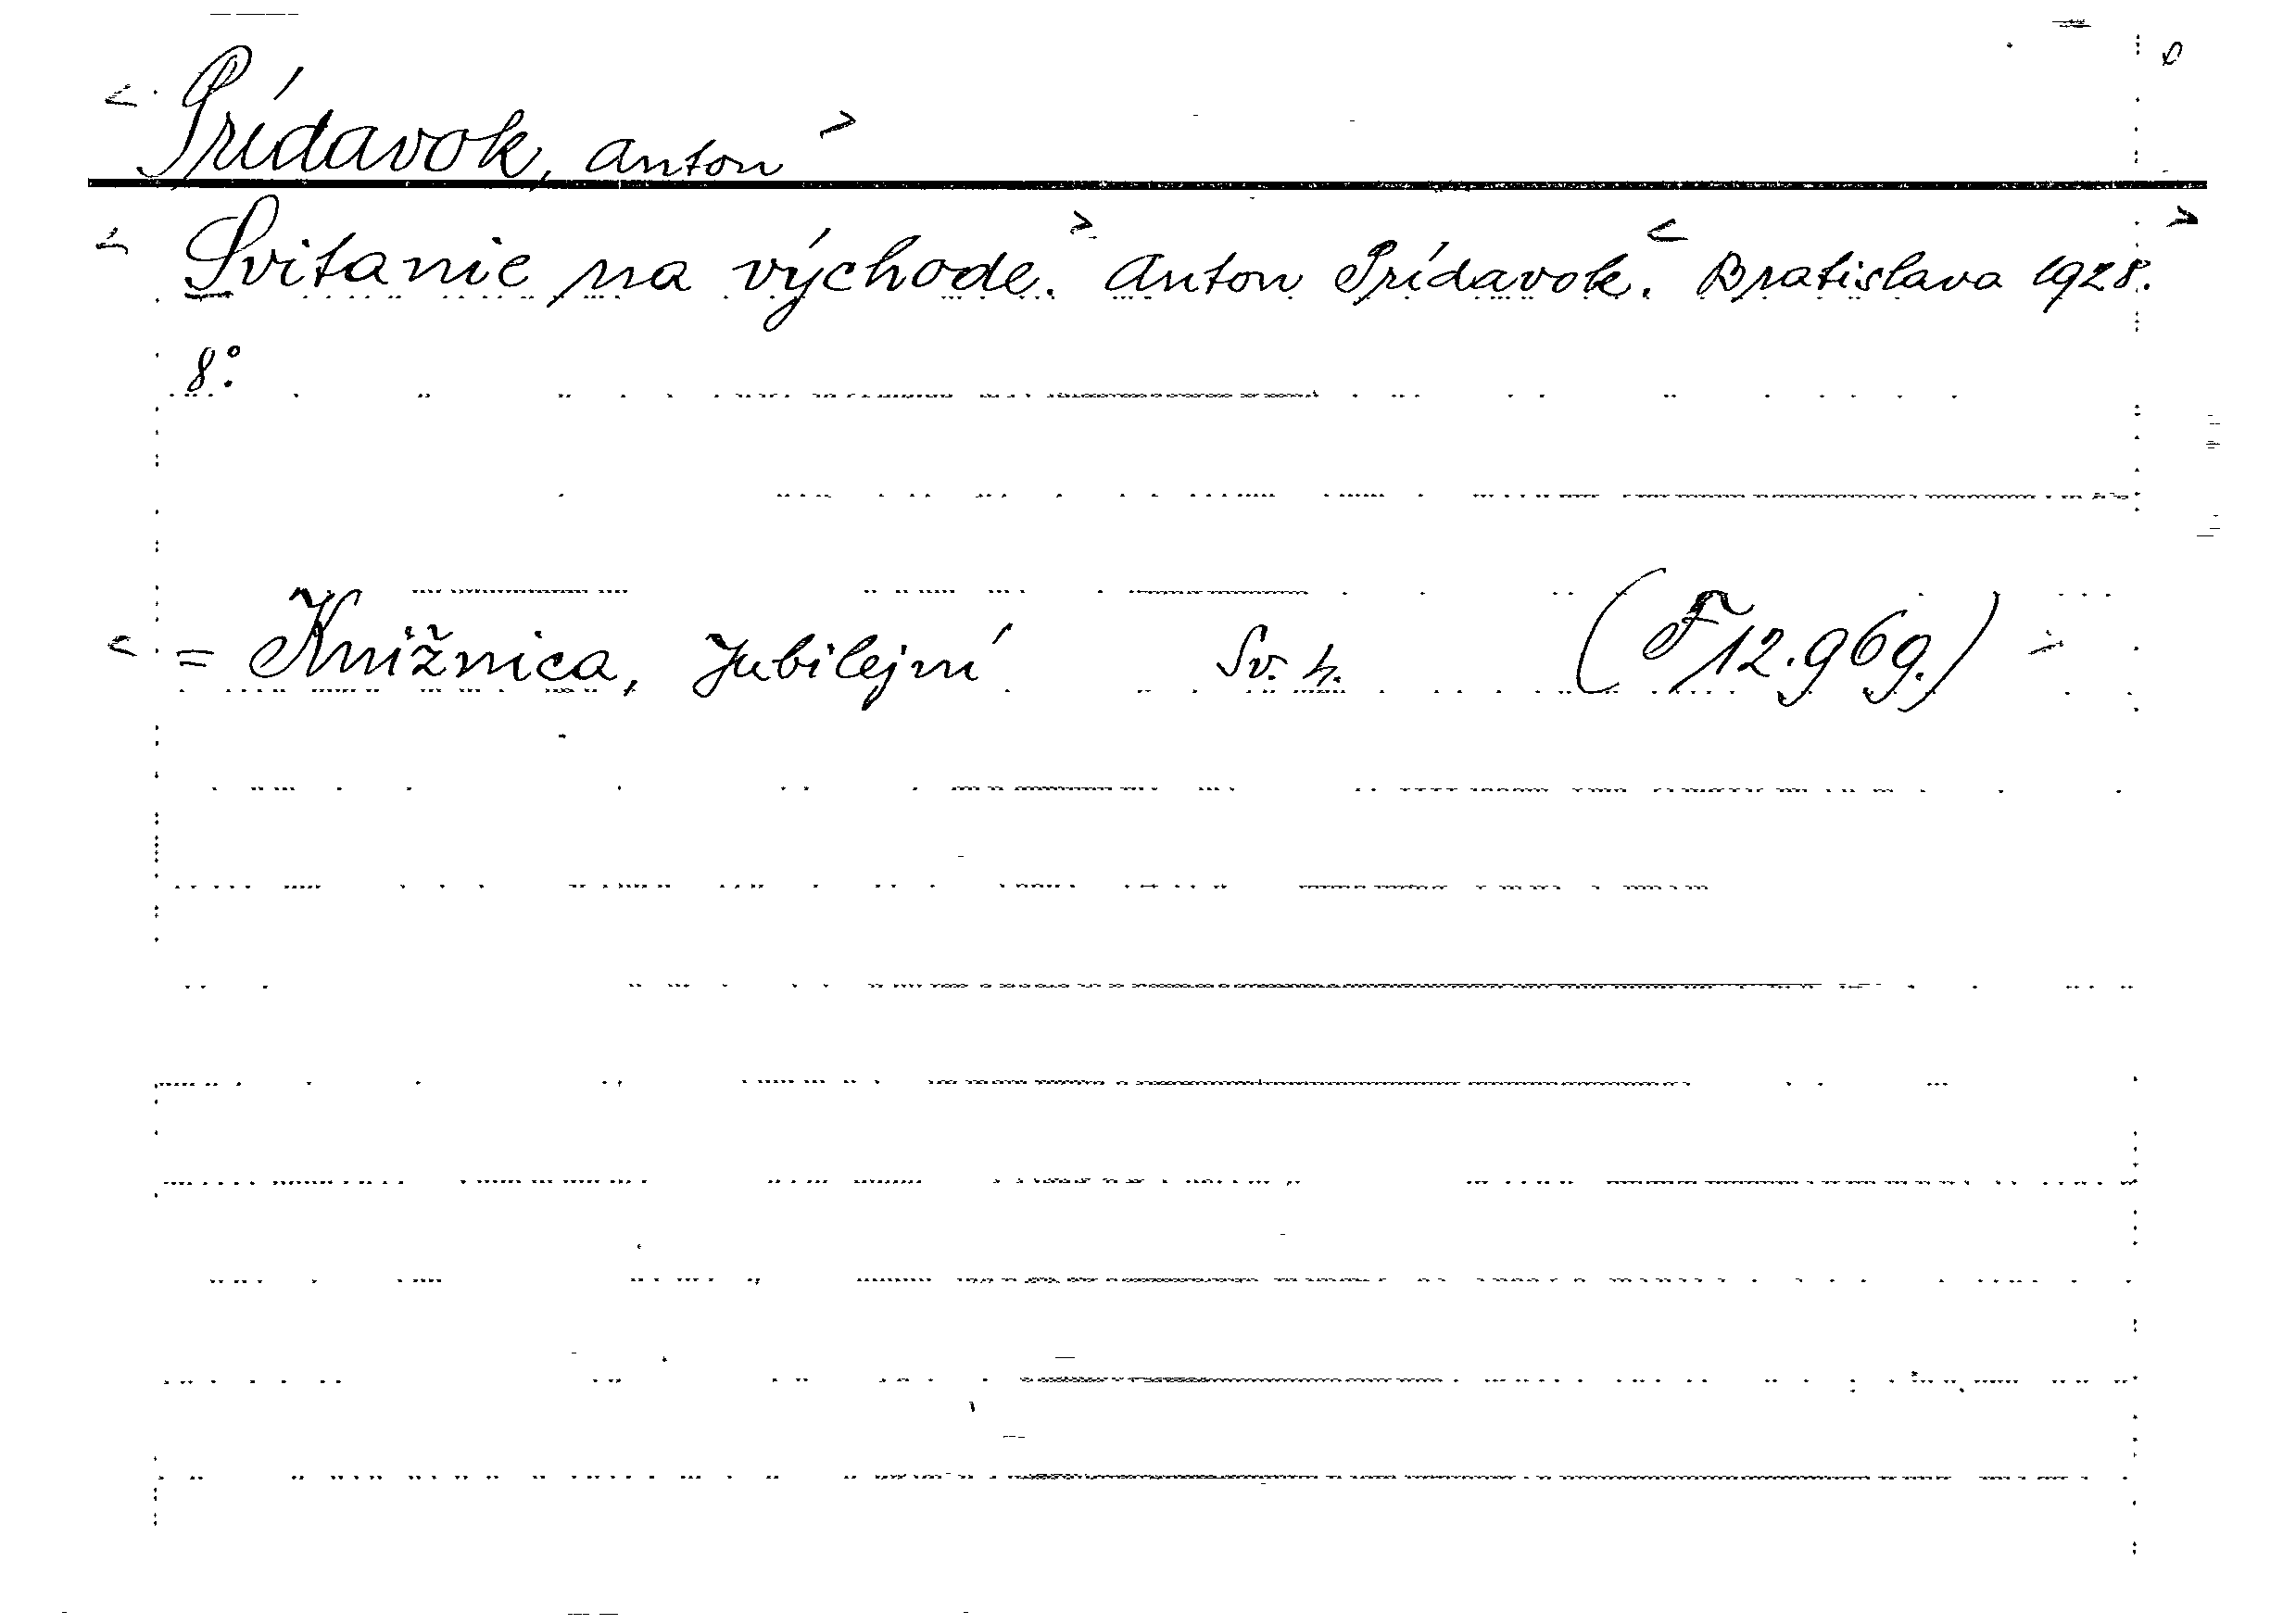 < Prídavok, Anton >
< Svitanie na východe. > Anton Prídavok. < Bratislava 1928. >
8°.
< = Knižnica, Jubilejní Sv. 4. (F 12.969.) >